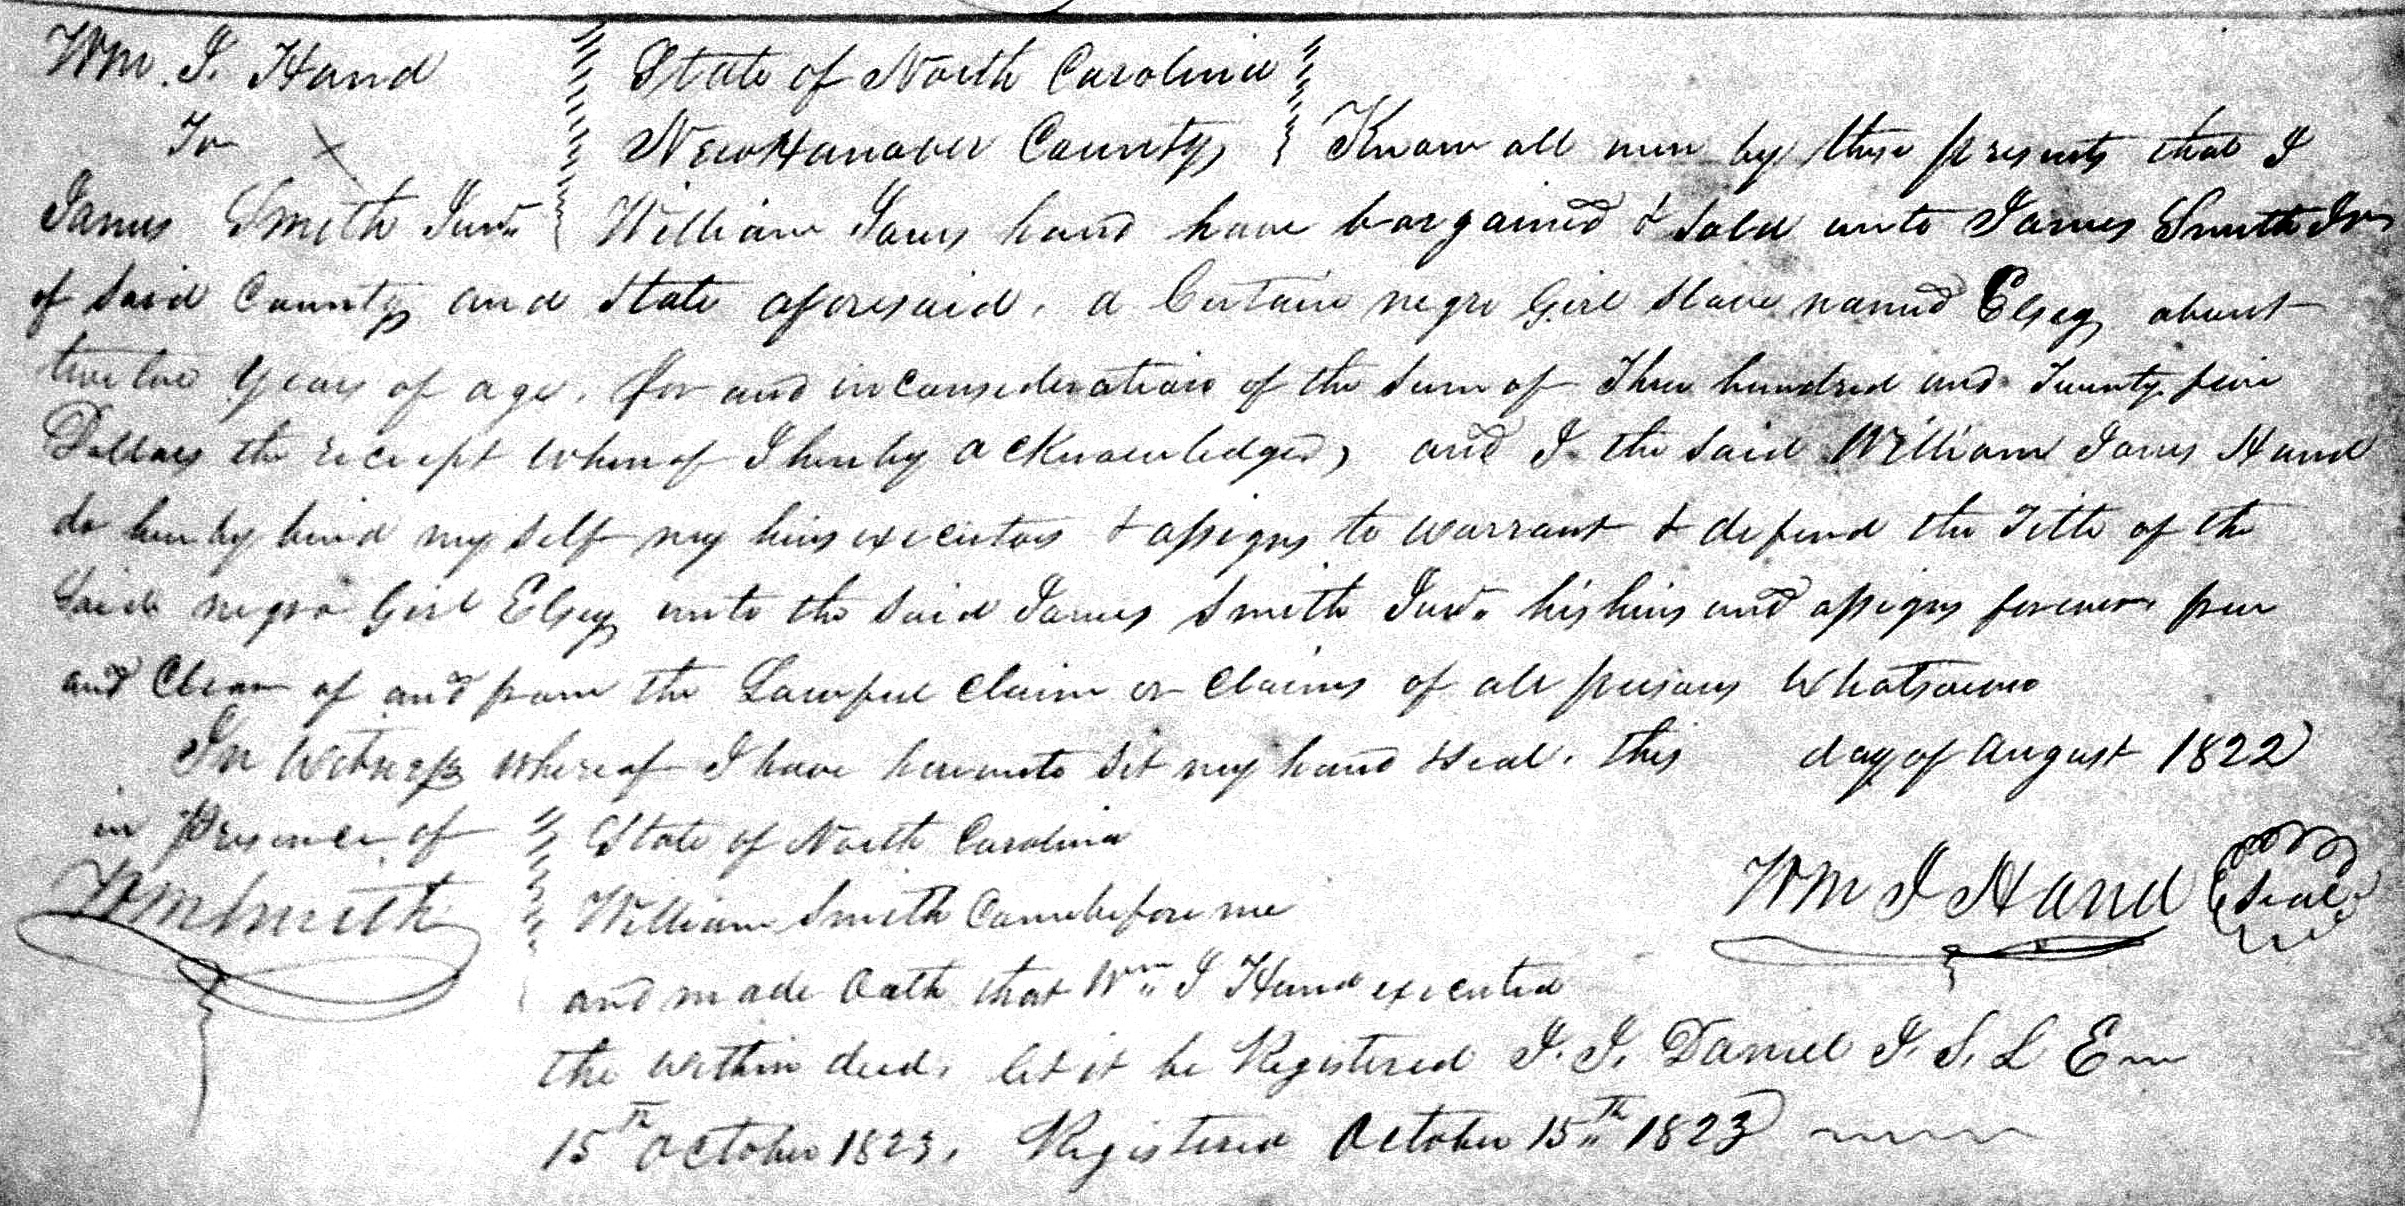 Wm. J. Hand
To
James Smith Junr.
State of North Carolina
New Hanover County
Know all men by these presents that I
William James hand have bargained & Sold unto James Smith Jr
of Said County and State aforesaid, a Certain negro Girl Slave named Elsey about
twelve years of age. for and in consideration of the Sum of Three hundred and Twenty five
Dollars the receipt whereof I hereby acknowledged, and I the Said William James Hand
do hereby bind my Self my heirs executors & assigns to warrant & defend the Title of the
Said negro Girl Elsey unto the Said James Smith Junr. his heirs and assigns forever free
and Clear of and from the Lawful claim or claims of all persons Whatsoever
In Witness whereof I have hereunto Set my hand & Seal. this day of August 1822
in Presence of
Wm Smith
Wm J Hand
Seal
State of North Carolina
William Smith Came before me
and made Oath that Wm. J Hand executed
the within deed, let it be Registered J. J. Daniel J. S. L E
15th October 1823. Registered October 15th 1823